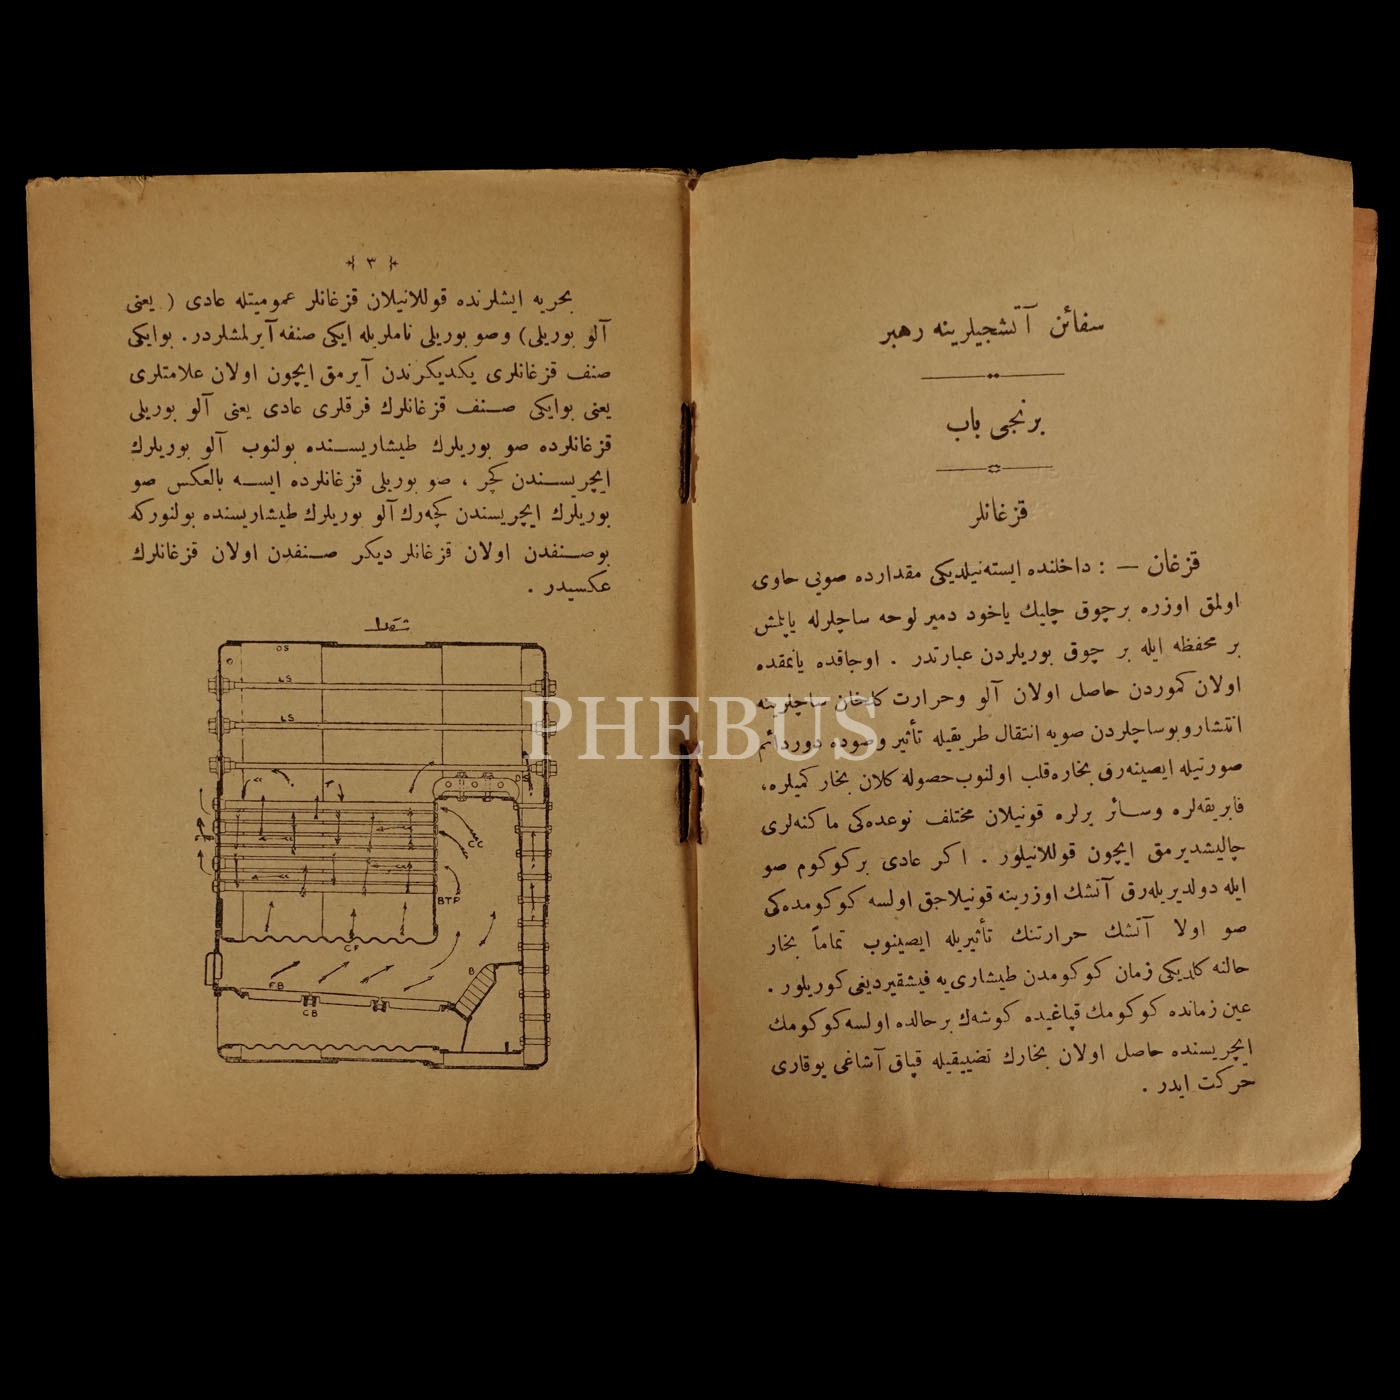 سفائن آتشجیلرینه رهبر
برنجی باب
قزغانلر
قزغان — : داخلنده ایسته‌نیلدیکی مقدارده صویی حاوی
اولمق اوزره برچوق چلیك یاخود دمیر لوحه ساچلرله یاپلمش
بر محفظه ایله بر چوق بوریلردن عبارتدر . اوجاقده یانمقده
اولان کموردن حاصل اولان آلو وحرارت کلخان ساچلرینه
انتشاروبوساچلردن صویه انتقال طریقیله تأثیر وصوده دوردائم
صورتیله ایصینه‌رق بخاره‌قلب اولنوب‌حصوله کلان بخار کمیلره،
فابریقه‌لره وسائر یرلره قونیلان مختلف نوعده‌کی ماکنه‌لری
چالیشدیرمق ایچون قوللانیلور . اکر عادی برکوکوم صو
ایله دولدیریله‌رق آتشك اوزرینه قونیلاجق اولسه کوکومده‌کی
صو اولا آتشك حرارتنك تأثیریله ایصینوب تماماً بخار
حالنه کلدیکی زمان کوکومدن طیشاری‌یه فیشقیردیغی کوریلور .
عین زمانده کوکومك قپاغیده کوشه‌ك برحالده اولسه کوکومك
ایچریسنده حاصل اولان بخارك تضییقیله قپاق آشاغی یوقاری
حرکت ایدر .
٣
بحریه ایشلرنده قوللانیلان قزغانلر عمومیتله عادی ( یعنی
آلو بوریلی) وصو بوریلی ناملریله ایکی صنفه آیرلمشلردر . بوایکی
صنف قزغانلری یکدیکرندن آیرمق ایچون اولان علامتلری
یعنی بوایکی صنف قزغانلرك فرقلری عادی یعنی آلو بوریلی
قزغانلرده صو بوریلرك طیشاریسنده بولنوب آلو بوریلرك
ایچریسندن کچر ، صو بوریلی قزغانلرده ایسه بالعکس صو
بوریلرك ایچریسندن کچه‌رك آلو بوریلرك طیشاریسنده بولنورکه
بوصنفدن اولان قزغانلر دیکر صنفدن اولان قزغانلرك
عکسیدر .
شکل ١
OS
LS
LS
BTP
CF
B
FB
CB
PHEBUS